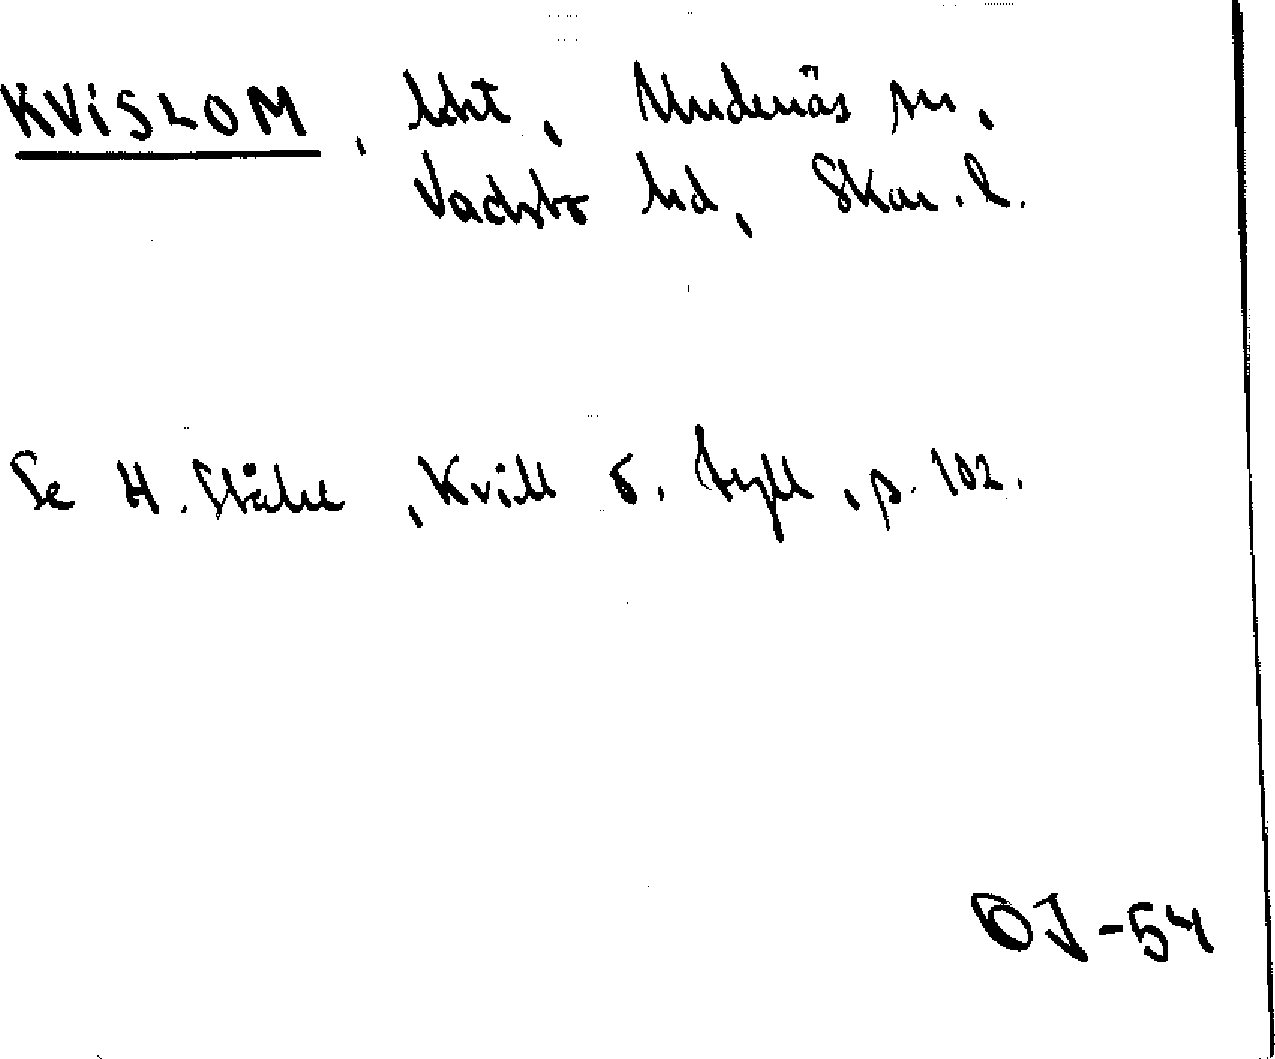 KVISLOM, tkt, Undenäs sn,
Vadsbo hd, Skar. l.
Se H. Ståhle, Kvill o. tyll, p. 102.
OJ-54